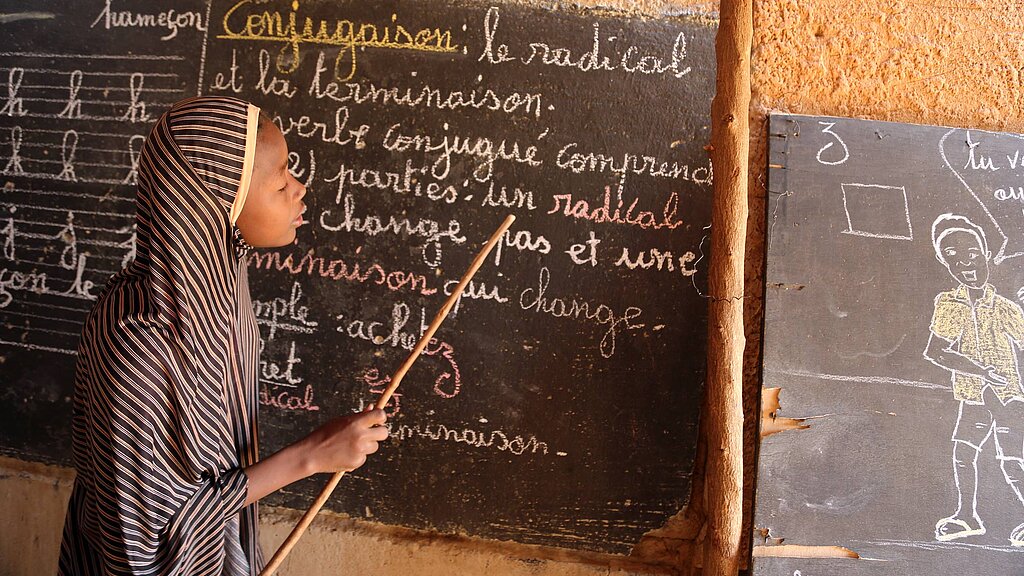 hameçon
h h h
h h h
j j j
çon le
Conjugaison : le radical
et la terminaison.
verbe conjugué comprend
parties : un radical
change pas et une
minaison qui change.
mple : achetez
ical
minaison.
3
tu v
ou